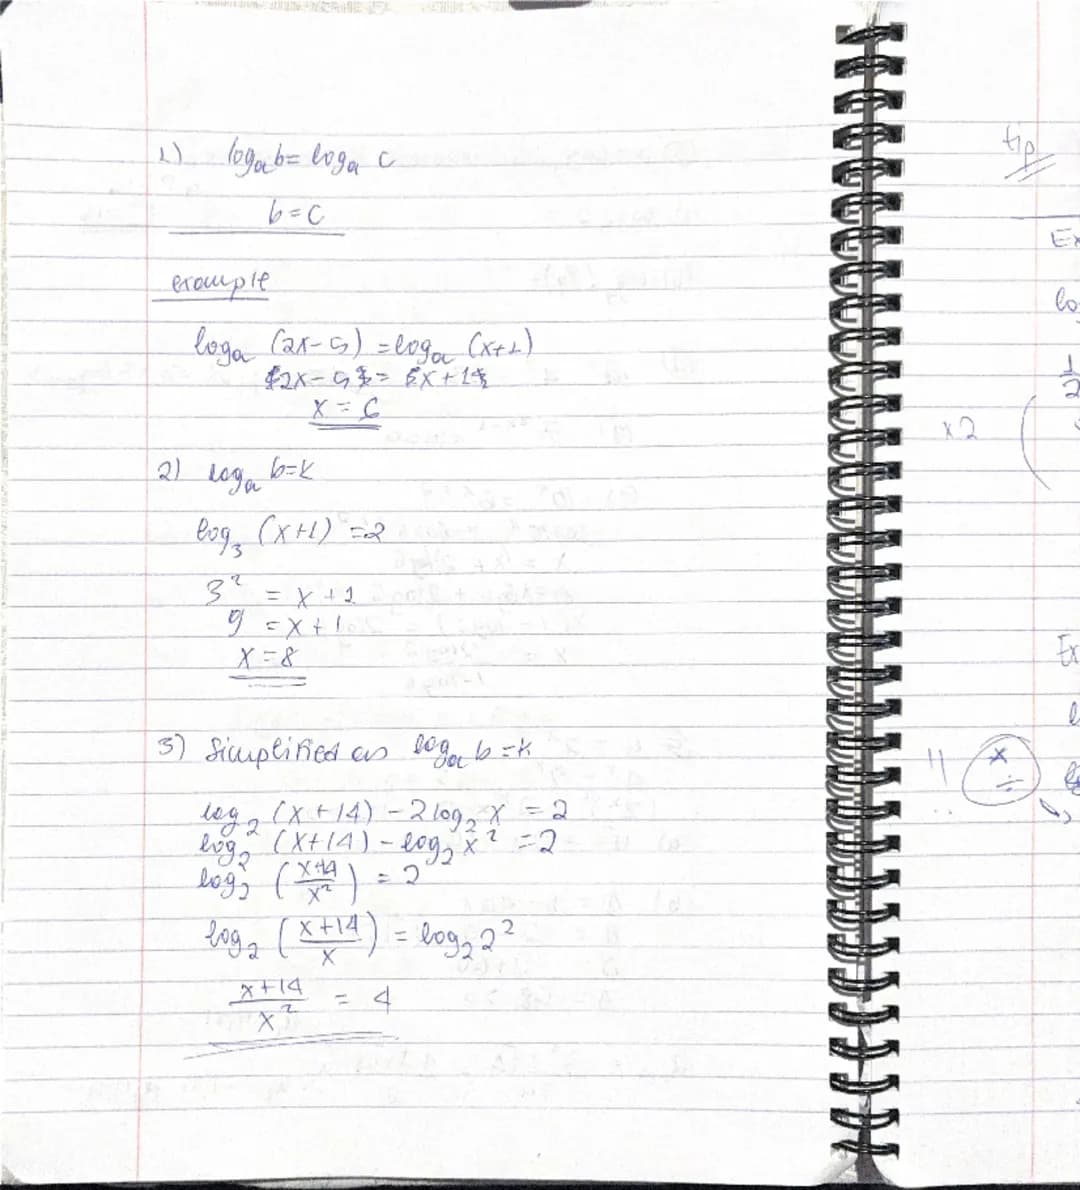 1) logₐ b = logₐ c
b = c
example
logₐ (2x - 5) = logₐ (x+1)
2x - 5 = x + 1
x = 6
2) logₐ b = k
log₃ (x+1) = 2
3² = x + 1
9 = x + 1
x = 8
3) Simplified as logₐ b = k
log₂ (x + 14) - 2 log₂ x = 2
log₂ (x+14) - log₂ x² = 2
log₂ (x+14 / x²) = 2
log₂ (x+14 / x) = log₂ 2²
x+14 / x² = 4
tip
Ex
lo
1/2
x2 (
Ex
x